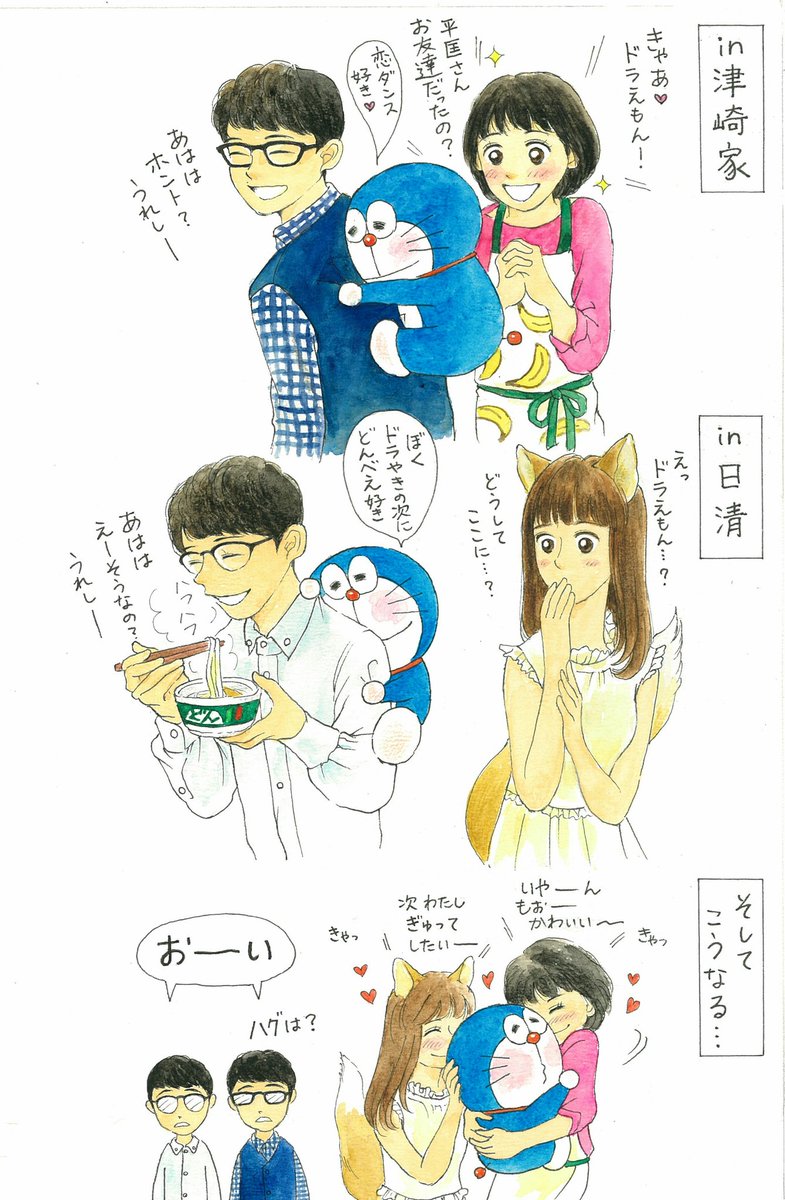 in津崎家
きゃあ♥
ドラえもん!
平匡さん
お友達だったの?
恋ダンス
好き♥
あはは
ホント?
うれしー
in日清
えっ
ドラえもん…?
どうして
ここに…?
ぼく
ドラやきの次に
どんべえ好き
あはは
えーそうなの?
うれしー
ハフハフ
どん
そして
こうなる…
きゃっ
いやーん
もおー
かわいい〜
次わたし
ぎゅって
したいー
きゃっ
おーい
ハグは?